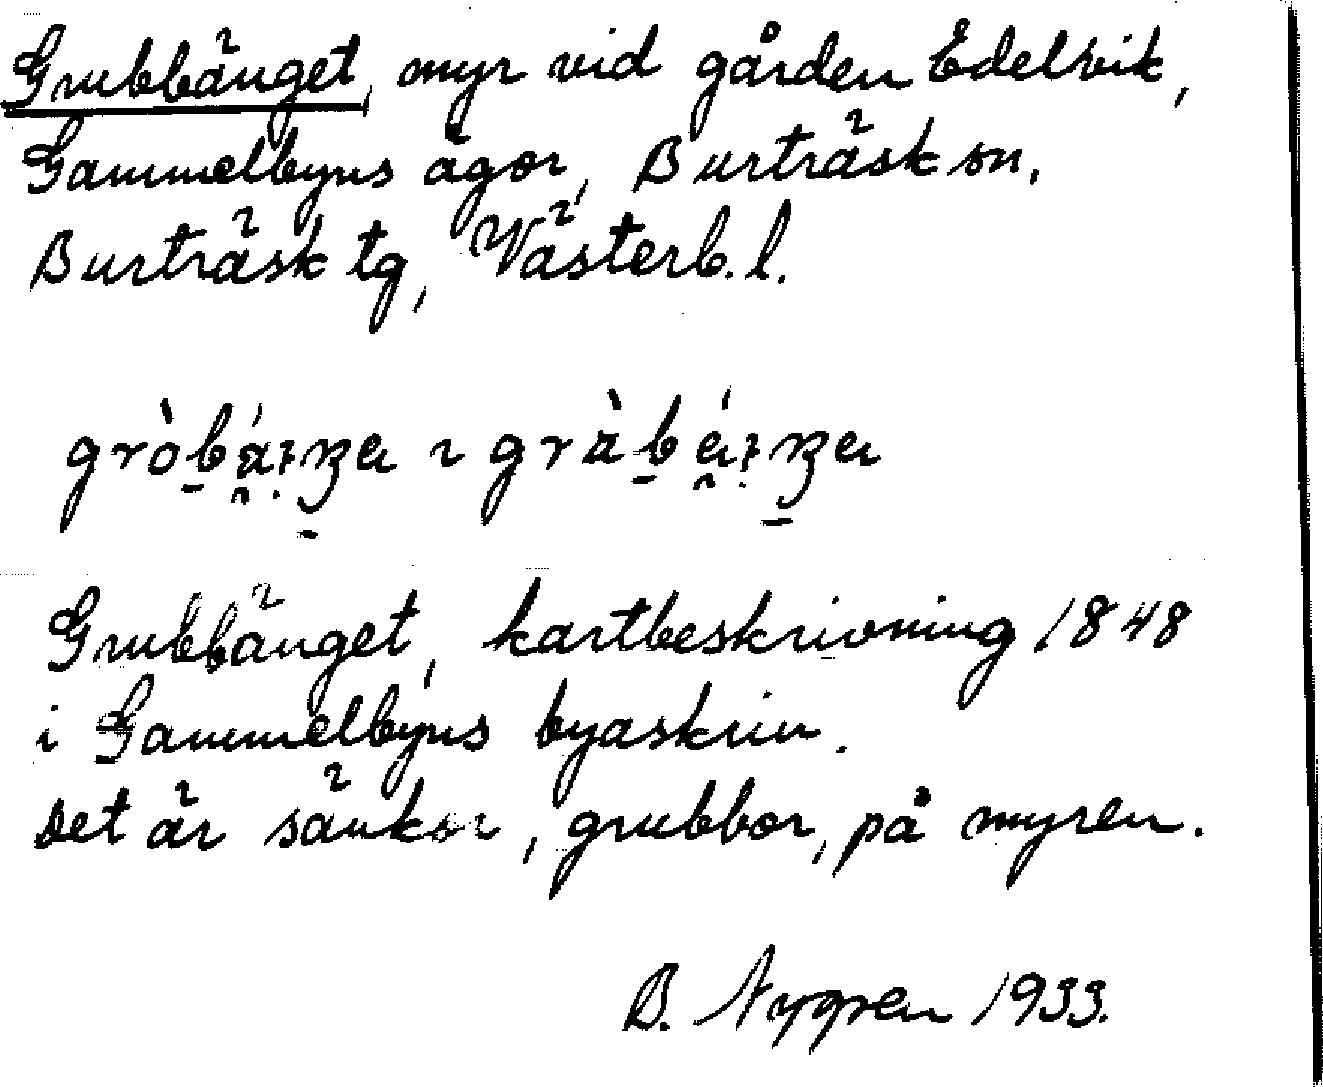 Grubbänget, myr vid gården Edelvik,
Gammelbyns ägor, Burträsk sn,
Burträsk tg, Västerb. l.
Grubbänget, kartbeskrivning 1848
i Gammelbyns byaskrin.
Det är sänkor, grubbor, på myren.
B. Nygren 1933.